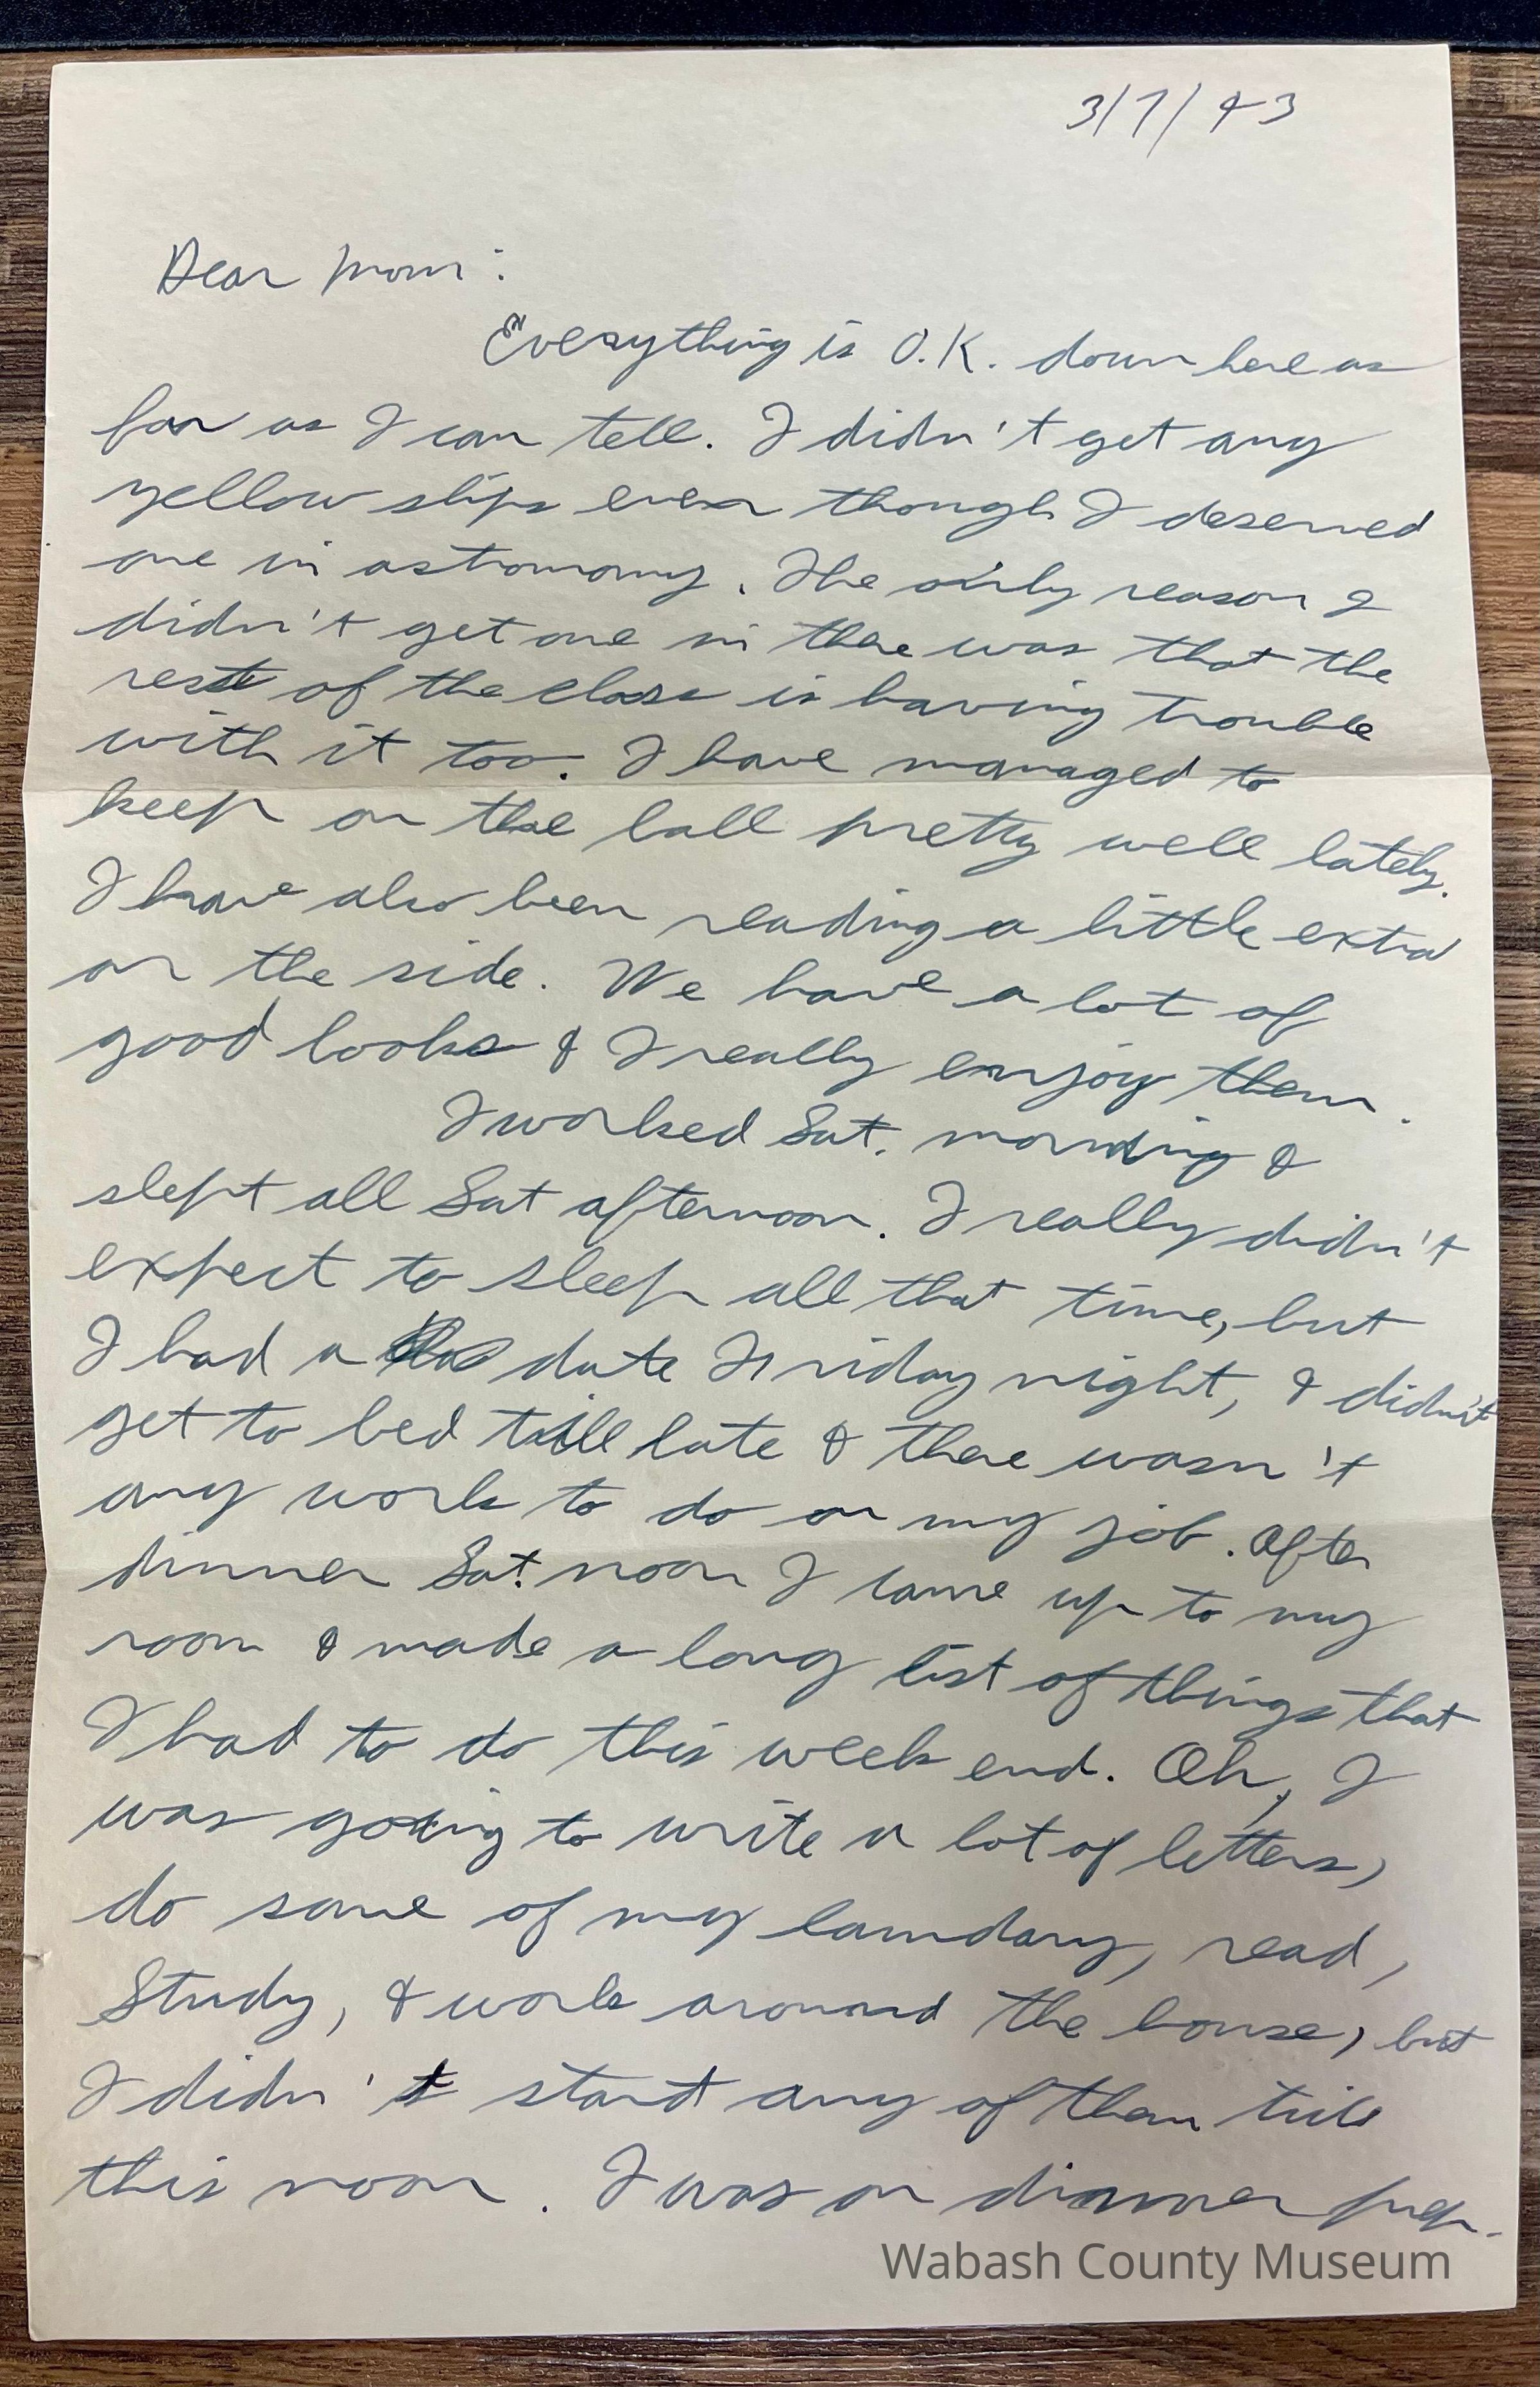 3/7/43
Dear Mom:
Everything is O.K. down here as
far as I can tell. I didn't get any
yellow slips even though I deserved
one in astronomy. The only reason I
didn't get one in there was that the
rest of the class is having trouble
with it too. I have managed to
keep on the ball pretty well lately.
I have also been reading a little extra
on the side. We have a lot of
good books & I really enjoy them.
I worked Sat. morning &
slept all Sat afternoon. I really didn't
expect to sleep all that time, but
I had a date Friday night, & didn't
get to bed till late & there wasn't
any work to do on my job. After
dinner Sat. noon I came up to my
room & made a long list of things that
I had to do this week end. Oh, I
was going to write a lot of letters,
do some of my laundary, read,
Study, & work around the house, but
I didn't start any of them till
this noon. I was on dinner prep.
Wabash County Museum